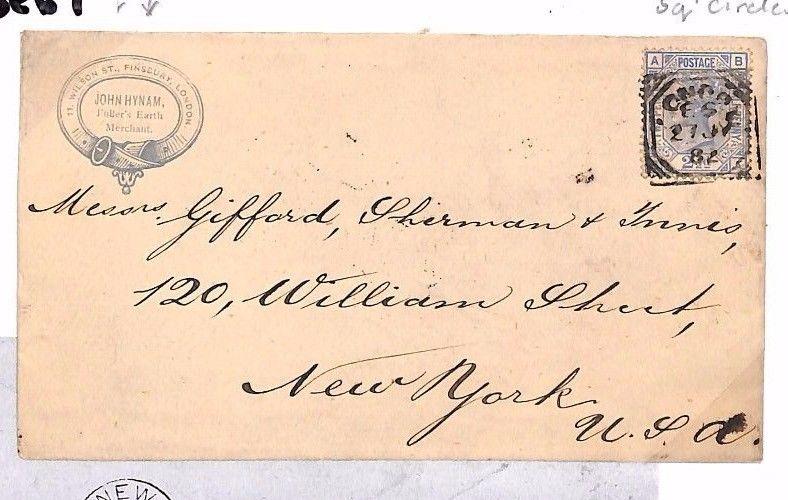 Sq' Circle
11. WILSON ST., FINSBURY, LONDON.
JOHN HYNAM,
Fuller's Earth
Merchant.
A POSTAGE B
LONDON
27 JY
82
Messrs. Gifford, Sherman & Innis,
120, William Street,
New York
U.S.A.
NEW